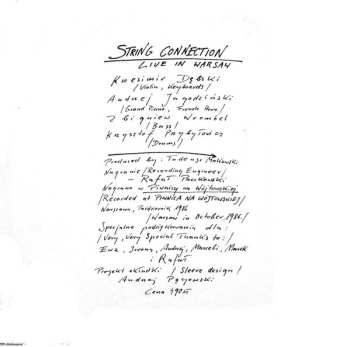 STRING CONNECTION
LIVE IN WARSAW
Krzesimir Dębski
/Violin, Keyboards/
Andrzej Jagodziński
/Grand Piano, French Horn/
Zbigniew Wrombel
/Bass/
Krzysztof Przybyłowicz
/Drums/
Produced by: Tadeusz
Nagranie /Recording Engineer/
- Rafał Paczkowski
Nagrano w Piwnicy na Wójtowskiej
/Recorded at PIWNICA NA WÓJTOWSKIEJ/
Warszawa, Październik 1986
/Warsaw in October, 1986/
Specjalne podziękowania dla:
/Very, Very Special Thanks to:/
Ewa, Iwona, Andrzej, Marceli, Marek
i Rafał
Projekt okładki /Sleeve design/
Andrzej Pągowski
Cena